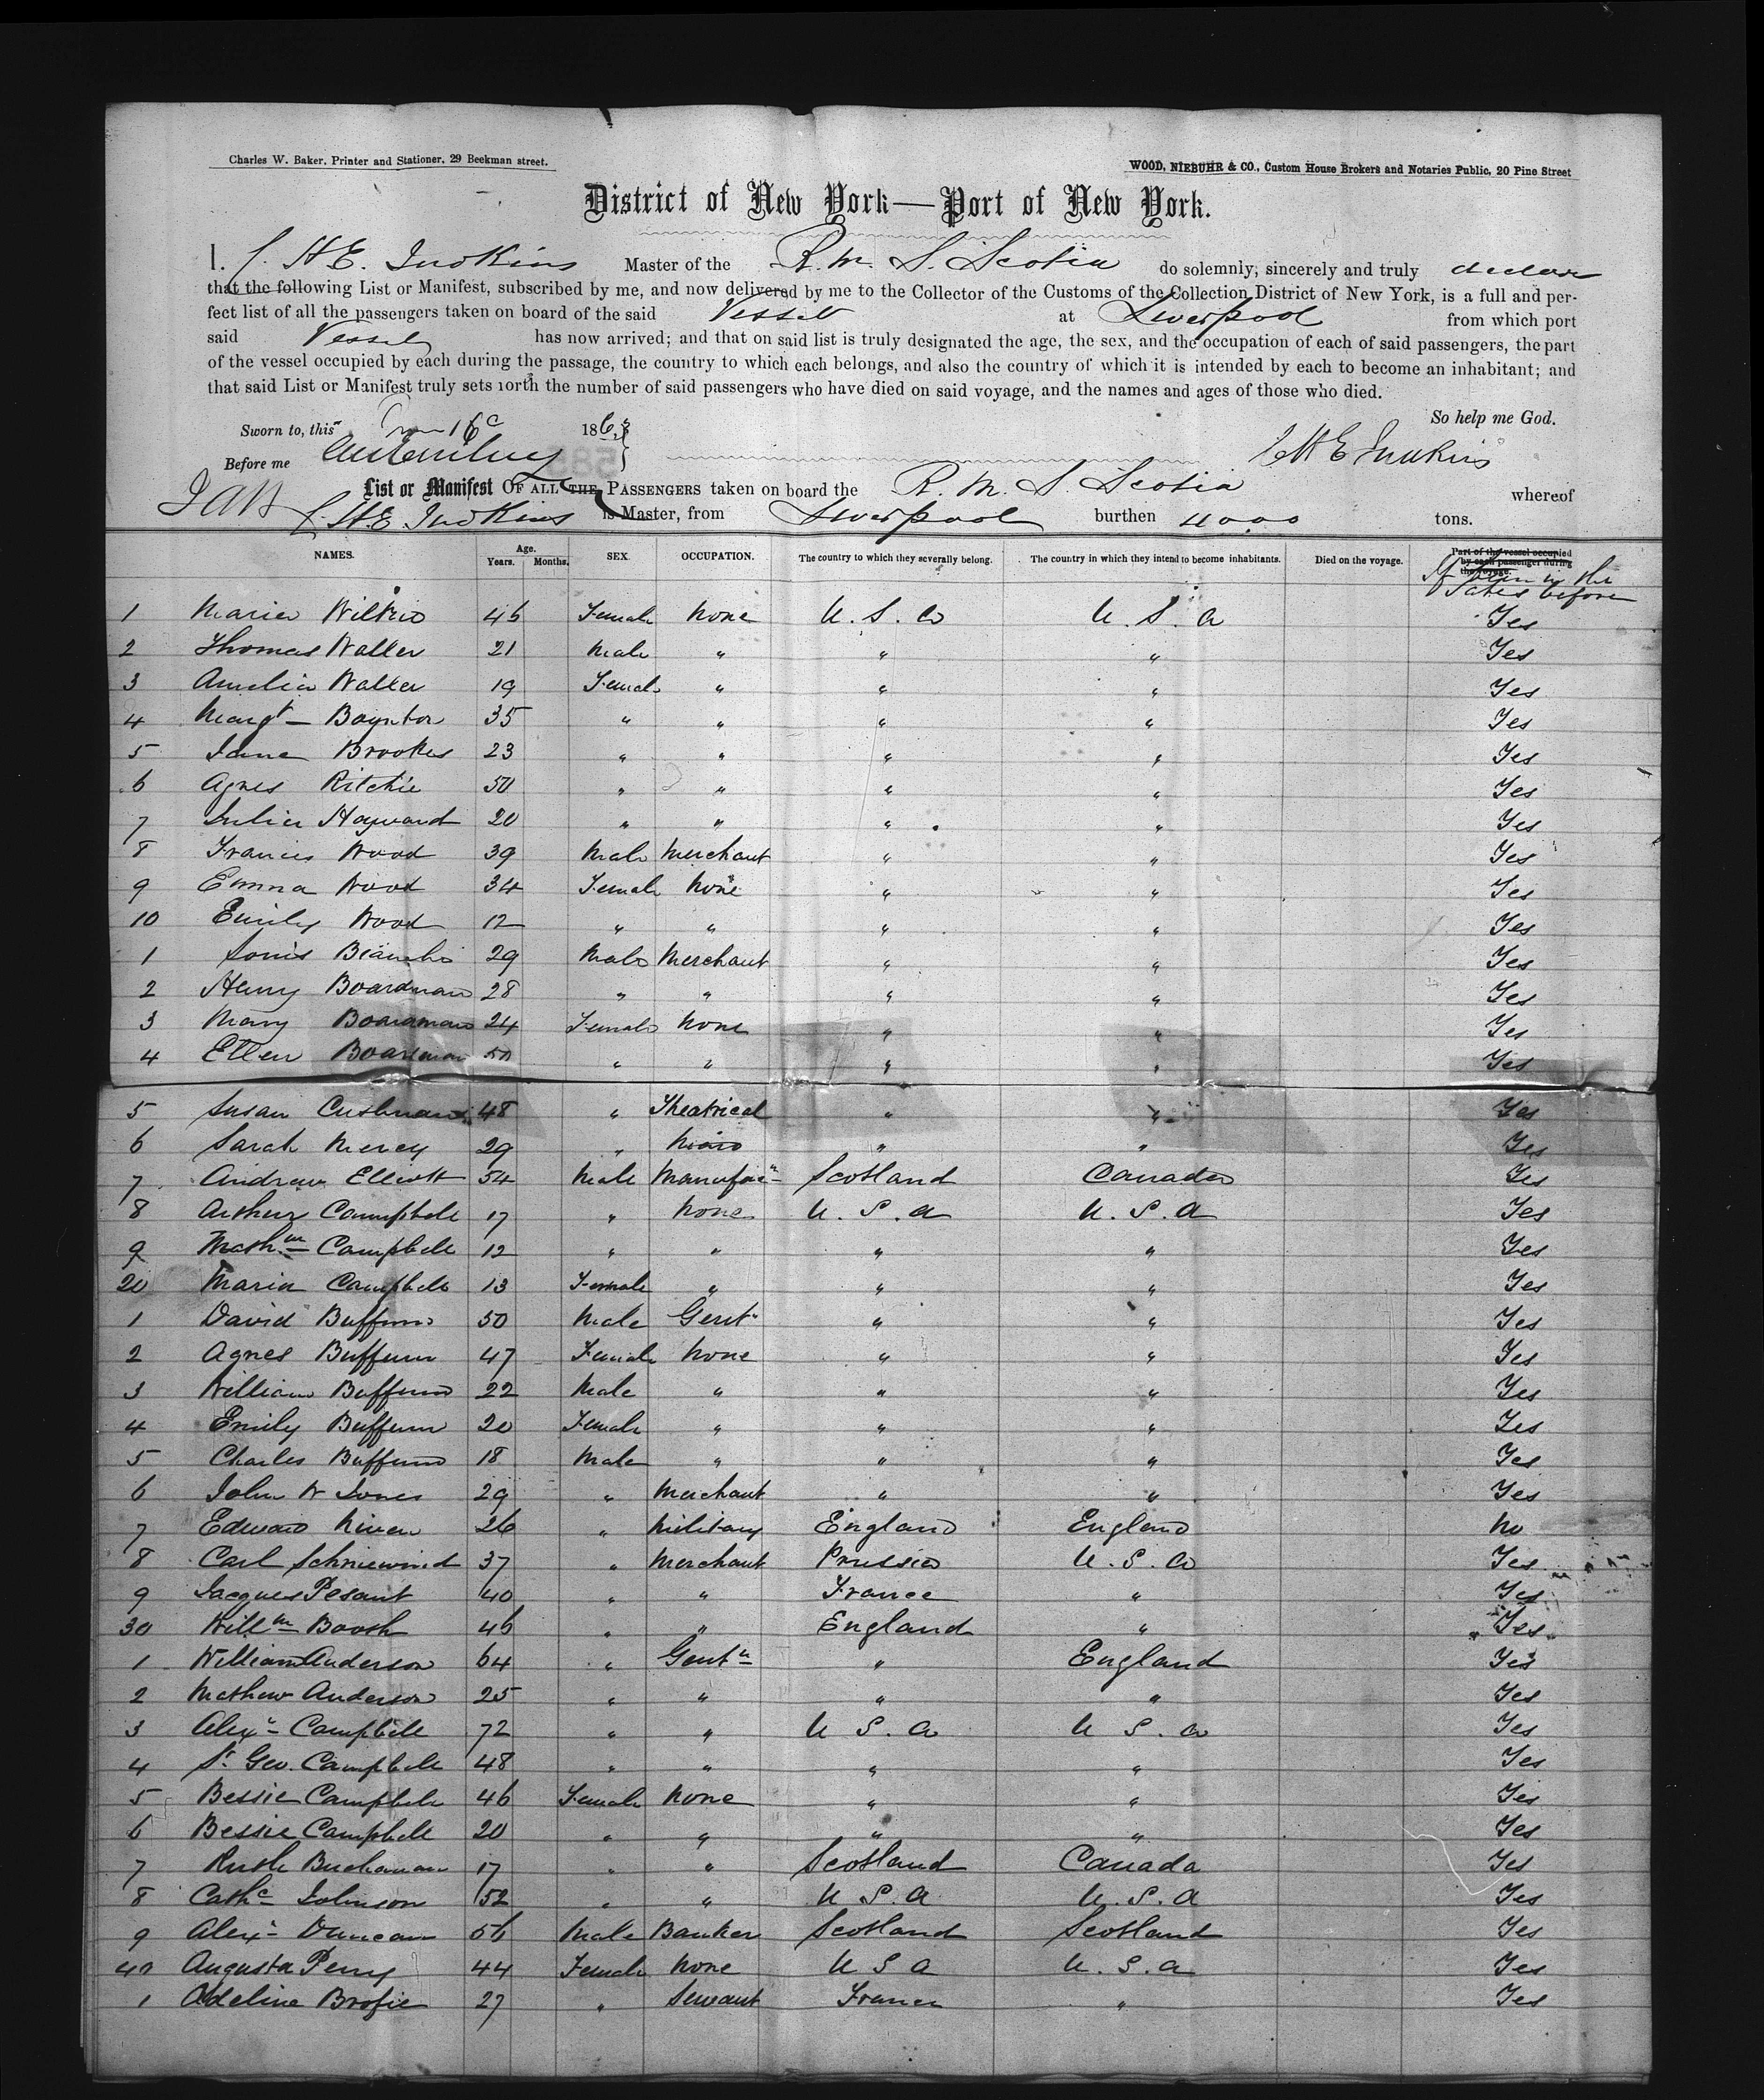 Charles W. Baker, Printer and Stationer, 29 Beekman street.
WOOD, NIEBUHR & CO., Custom House Brokers and Notaries Public, 20 Pine Street
District of New York—Port of New York.
I, C. H. E. Judkins Master of the R. M. S. Scotia do solemnly, sincerely and truly declare
that the following List or Manifest, subscribed by me, and now delivered by me to the Collector of the Customs of the Collection District of New York, is a full and per-
fect list of all the passengers taken on board of the said Vessel at Liverpool from which port
said Vessel has now arrived; and that on said list is truly designated the age, the sex, and the occupation of each of said passengers, the part
of the vessel occupied by each during the passage, the country to which each belongs, and also the country of which it is intended by each to become an inhabitant; and
that said List or Manifest truly sets forth the number of said passengers who have died on said voyage, and the names and ages of those who died.
So help me God.
Sworn to, this 16 186
Before me C H E Judkins
List or Manifest OF ALL THE PASSENGERS taken on board the R. M. S Scotia whereof
C. H. E. Judkins is Master, from Liverpool burthen 4000 tons.
NAMES. Age. Years. Months. SEX. OCCUPATION. The country to which they severally belong. The country in which they intend to become inhabitants. Died on the voyage. Part of the vessel occupied by each passenger during the voyage.
If been in the States before
1 Maria 46 Female None U. S. a U. S. a Yes
2 Thomas Waller 21 Male " " " Yes
3 Amelia Waller 19 Female " " " Yes
4 Margt Boynton 35 " " " " Yes
5 Jane Brookes 23 " " " " Yes
6 Agnes Ritchie 50 " " " " Yes
7 Julia Hayward 20 " " " " Yes
8 Francis Wood 39 Male Merchant " " Yes
9 Emma Wood 34 Female None " " Yes
10 Emily Wood 12 " " " " Yes
1 Louis Bianchi 29 Male Merchant " " Yes
2 Henry Boardman 28 " " " " Yes
3 Mary Boardman 24 Female None " " Yes
4 Ellen Boardman 50 " " " " Yes
5 Susan Cushman 48 " Theatrical " " Yes
6 Sarah Mercy 29 " " " Yes
7 Andrew Elliott 54 Male Manufacr Scotland Canada Yes
8 Arthur Campbell 17 " None U. S. a U. S. a Yes
9 Campbell 12 " " " " Yes
20 Maria Campbell 13 Female " " " Yes
1 David Buffum 50 Male Gent " " Yes
2 Agnes Buffum 47 Female None " " Yes
3 William Buffum 22 Male " " " Yes
4 Emily Buffum 20 Female " " " Yes
5 Charles Buffum 18 Male " " " Yes
6 John W Jones 29 " Merchant " " Yes
7 Edward Niven 26 " Military England England No
8 Carl Schniewind 37 " Merchant Prussia U. S. a Yes
9 Jacques Pesant 40 " " France " Yes
30 Willm Booth 46 " " England " Yes
1 William Anderson 64 " Gentn " England Yes
2 Mathew Anderson 25 " " " " Yes
3 Alexr Campbell 72 " " U S. a U S. a Yes
4 St Geo. Campbell 48 " " " " Yes
5 Bessie Campbell 46 Female None " " Yes
6 Bessie Campbell 20 " " " " Yes
7 Ruth Buchanan 17 " " Scotland Canada Yes
8 Cathe Johnson 52 " " U S. a U. S. a Yes
9 Alexr Duncan 56 Male Banker Scotland Scotland Yes
40 Augusta Perry 44 Female None U S a U. S. a Yes
1 Adeline Brofie 27 " Servant France " Yes